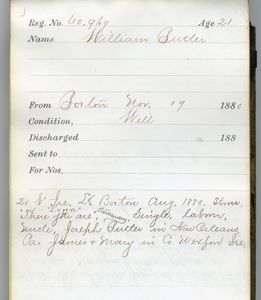 Reg. No. 60.969 Age 21
Name William Butler
From Boston Nov. 19 1880
Condition, Well
Discharged 188
Sent to
For Nos.
21 N. Ire. Ld Boston Aug. 1880. Stmr.
"There you are", Single, labour,
Uncle, Joseph Butler in New Orleans
Pa. James & Mary in Co. Wexford Ire.